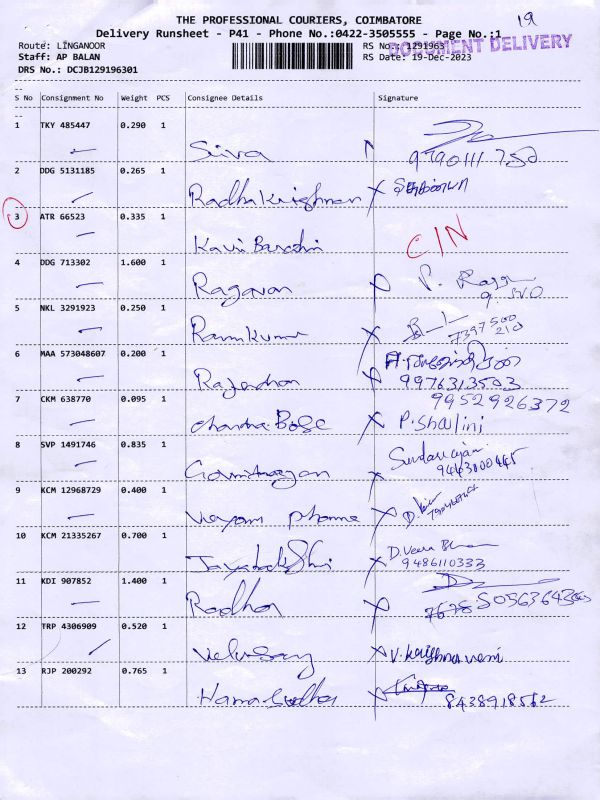 19
THE PROFESSIONAL COURIERS, COIMBATORE
Delivery Runsheet - P41 - Phone No.:0422-3505555 - Page No.:1
Route: LINGANOOR RS No.: 1291963 DOCUMENT DELIVERY
Staff: AP BALAN RS Date: 19-Dec-2023
DRS No.: DCJB129196301
S No Consignment No Weight PCS Consignee Details Signature
1 TKY 485447 0.290 1
Siva 9790111 750
2 DDG 5131185 0.265 1
Radhakrishnan
3 ATR 66523 0.335 1
C/N
4 DDG 713302 1.600 1
Ragavan P.
5 NKL 3291923 0.250 1
Ramkumar 7397500
210
6 MAA 573048607 0.200 1
9976313503
7 CKM 638770 0.095 1 9952926372
Chandra Bose P. Shalini
8 SVP 1491746 0.835 1
9443000445
9 KCM 12968729 0.400 1
10 KCM 21335267 0.700 1
D. Veera
9486110333
11 KDI 907852 1.400 1
Radha
12 TRP 4306909 0.520 1
V. Krishnaveni
13 RJP 200292 0.765 1
Hama Sudha